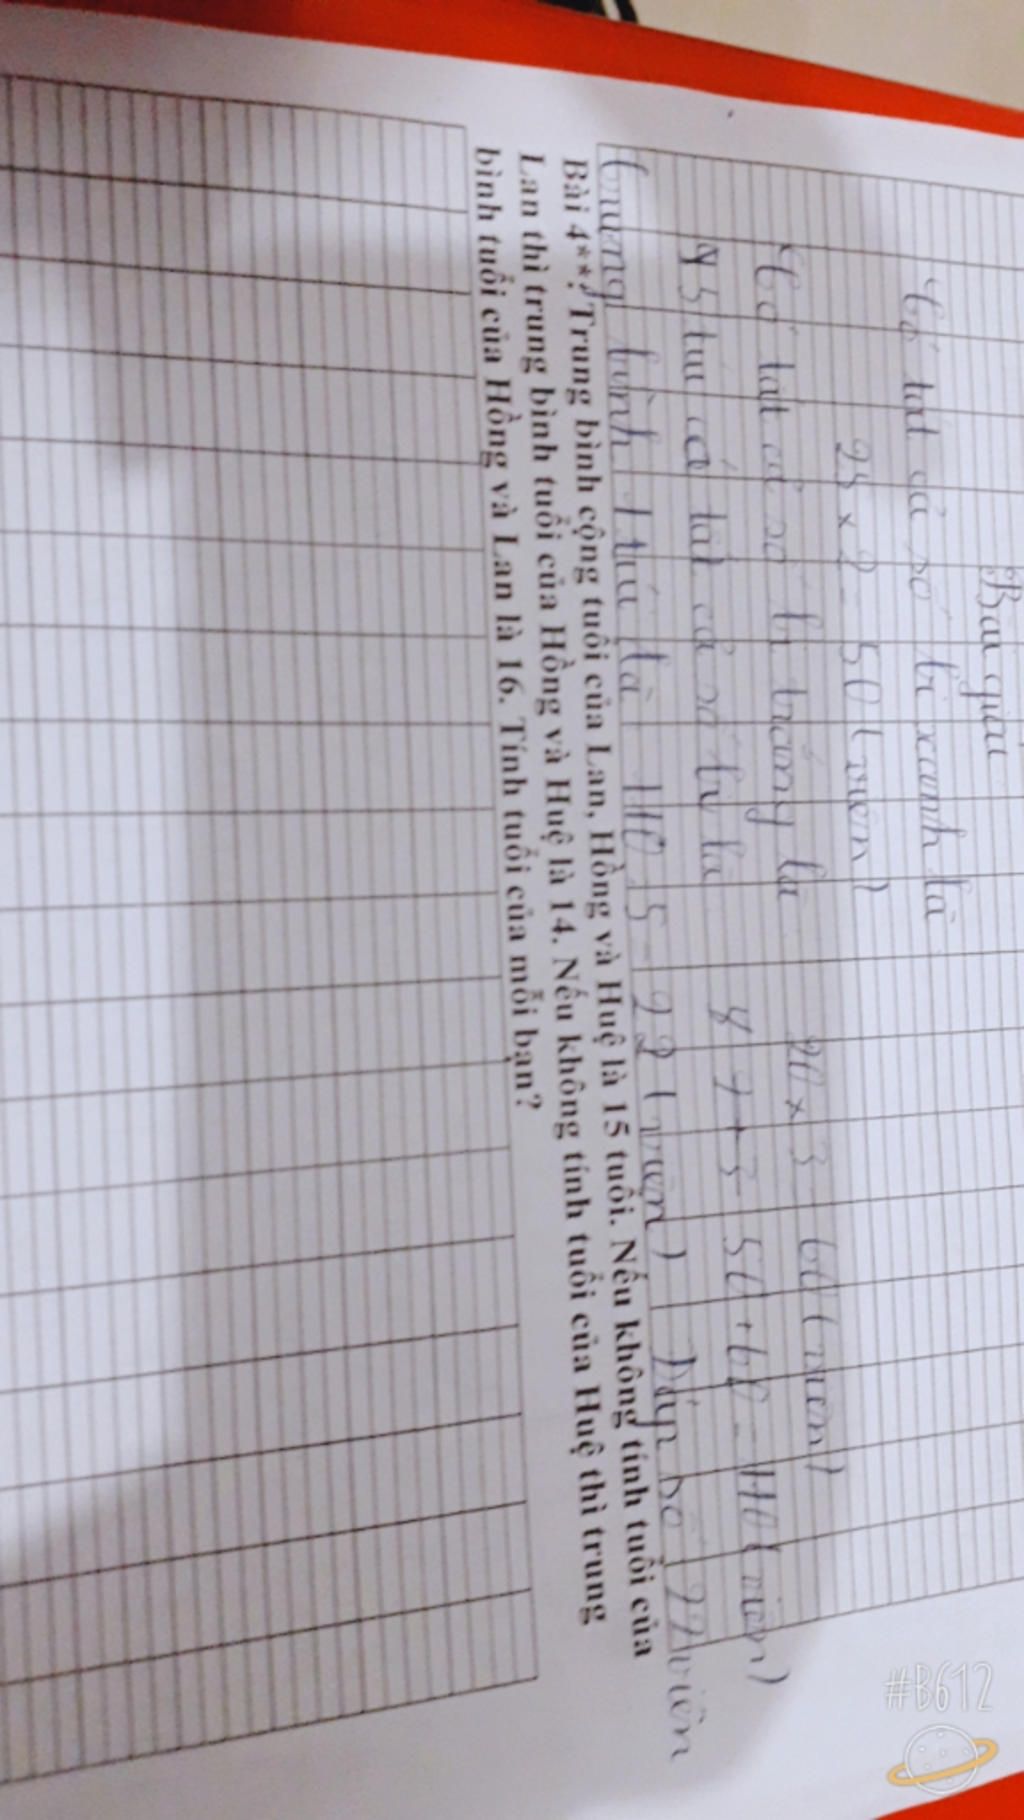 Bài giải
Có tất cả số bi xanh là
25 x 2 = 50 (viên)
Có tất cả số bi trắng là 20 x 3 = 60 (viên)
túi có tất cả số bi là 2 + 3 50 + 60 = 110 (viên)
Trung bình 1 túi là 110 : 5 = 22 (viên) Đáp số 22 viên
Bài 4**: Trung bình cộng tuổi của Lan, Hồng và Huệ là 15 tuổi. Nếu không tính tuổi của
Lan thì trung bình tuổi của Hồng và Huệ là 14. Nếu không tính tuổi của Huệ thì trung
bình tuổi của Hồng và Lan là 16. Tính tuổi của mỗi bạn?
#B612